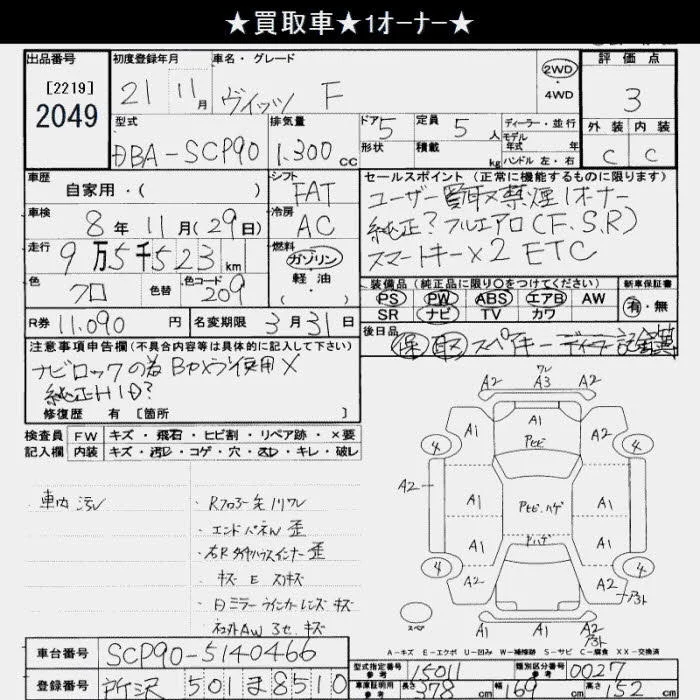 ★買取車★1オーナー★
出品番号
[2219]
2049
初度登録年月
21 11月
車名・グレード
ヴィッツ F
2WD
・
4WD
評価点
3
外装 内装
C C
型式
DBA-SCP90
排気量
1.300cc
ドア
5
形状
定員
5人
積載
kg
ディーラー・並行
モデル
年式 年
ハンドル 左・右
車歴
自家用・( )
シフト
FAT
車検
8年11月(29日)
冷房
AC
走行
9万5千523km
燃料
ガソリン
軽油
・( )
色
クロ
色替
色コード
209
セールスポイント(正常に機能するものに限ります)
ユーザー買取×禁煙1オーナー
純正?フルエアロ(F.S.R)
スマートキー×2 ETC
装備品(純正品に限り○をつけてください)
PS PW ABS エアB AW
SR ナビ TV カワ
新車保証書
有・無
R券 11.090円
名変期限 3月31日
後日品
保 取 スペアキー ディーラー記録簿
注意事項申告欄(不具合内容等は具体的に記入して下さい)
ナビロックの為Bカメラ使用×
純正HID?
修復歴 有 [箇所 ]
検査員
記入欄
FW キズ・飛石・ヒビ割・リペア跡・×要
内装 キズ・汚レ・コゲ・穴・スレ・キレ・破レ
車内汚レ
・エンドパネル歪
・右Rタイヤハウスインナー歪
・キズ E スリキズ
・Dミラーウインカーレンズキズ
ワレ
A2 A3 A2
4 A1 A1 A2 4
Aセビ
A2 A1 Aセビ.ハゲ A1
A1 Aハゲ A1
4 A2 A2 4
A1 A1 A2
スペア
A-キズ E-エクボ U-凹み W-補修跡 S-サビ C-腐食 XX-交換済
車台番号 SCP90-5140466
登録番号 所沢 501ま8510
型式指定番号
参考
15011
類別区分番号
参考
0027
車庫証明用
参考
長さ378cm 幅169cm 高さ152cm